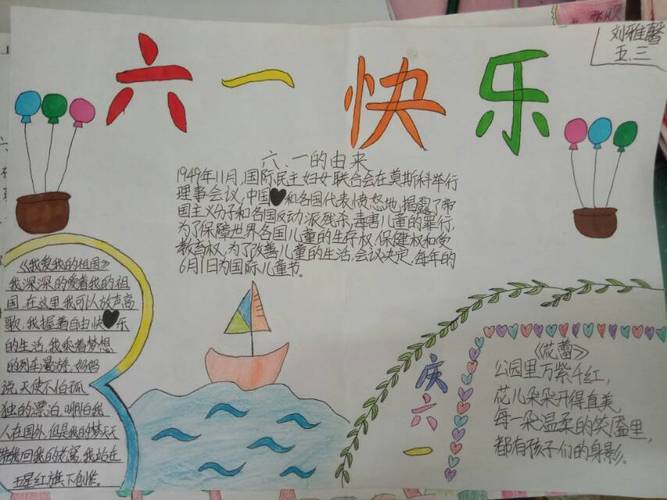 六一快乐
刘雅馨
五.三
六、一的由来
1949年11月,国际民主妇女联合会在莫斯科举行
理事会议,中国和各国代表愤怒地,揭露了帝
国主义分子和各国反动派残杀、毒害儿童的罪行,
为了保障世界各国儿童的生存权,保健权和受
教育权,为了改善儿童的生活,会议决定,每年的
6月1日为国际儿童节。
《我爱我的祖国》
我深深的爱着我的祖
国,在这里我可以放声高
歌,我握着自由快乐
的生活,我乘着梦想
的列车遨游,妈妈
说,天使不怕孤
独的漂泊,哪怕我
人在国外,但是我的梦天天
我的
五星红旗下
庆六一
《花蕾》
公园里万紫千红,
花儿朵朵开得真美,
每一朵温柔的笑靥里,
都有孩子们的身影。